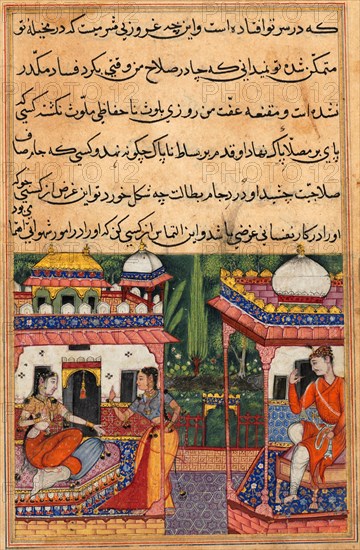 که در سر تو افتاده است و این چه غرور بی ثمریست که در مخیلهٔ تو
متمکن شده تو نمیدانی که چادر صلاح من وقتی بگرد فساد مکدر
نشده است و مقنعه عفت من روزی بلوث ناحفاظی ملوث نکشته کسی که
پای بر مصلا پاک نهاد او قدم بر بساط ناپاک چگونه نهد و کسی که جام صاف
صلاحیت چشید او دردِ جام بطالت چه شکل خورد تو این غرض از کسی جو که
او را در کار نفسانی غرضی باشد و این التماس از کسی کن که او را در امور شهوانی